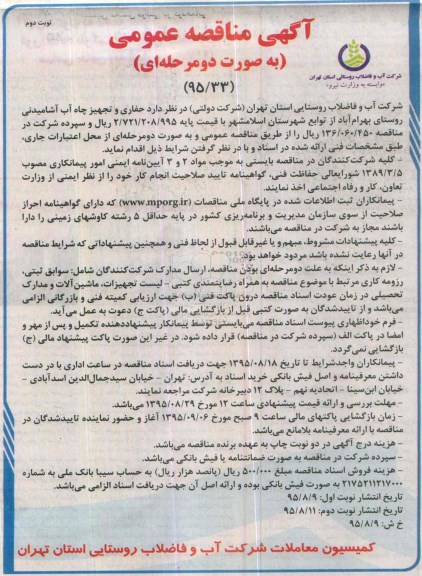 نوبت دوم
آگهی مناقصه عمومی
(به صورت دومرحله‌ای)
(۹۵/۳۳)
شرکت آب و فاضلاب روستایی استان تهران
«وابسته به وزارت نیرو»
شرکت آب و فاضلاب روستایی استان تهران (شرکت دولتی) در نظر دارد حفاری و تجهیز چاه آب آشامیدنی
روستای بهرام‌آباد از توابع شهرستان اسلامشهر با قیمت پایه ۲/۷۲۱/۲۰۸/۹۹۵ ریال و سپرده شرکت در
مناقصه ۱۳۶/۰۶۰/۴۵۰ ریال را از طریق مناقصه عمومی و به صورت دومرحله‌ای از محل اعتبارات جاری،
طبق مشخصات فنی ارائه شده در اسناد و با در نظر گرفتن شرایط ذیل اقدام نماید.
- کلیه شرکت‌کنندگان در مناقصه بایستی به موجب مواد ۲ و ۳ آیین‌نامه ایمنی امور پیمانکاری مصوب
۱۳۸۹/۳/۵ شورایعالی حفاظت فنی، گواهینامه تایید صلاحیت انجام کار خود را از نظر ایمنی از وزارت
تعاون، کار و رفاه اجتماعی اخذ نمایند.
- پیمانکاران ثبت اطلاعات شده در پایگاه ملی مناقصات (www.mporg.ir) که دارای گواهینامه احراز
صلاحیت از سوی سازمان مدیریت و برنامه‌ریزی کشور در پایه حداقل ۵ رشته کاوشهای زمینی را دارا
باشند مجاز به شرکت در مناقصه می‌باشند.
- کلیه پیشنهادات مشروط، مبهم و یا غیرقابل قبول از لحاظ فنی و همچنین پیشنهاداتی که شرایط مناقصه
در آنها رعایت نشده باشد مردود خواهد بود.
- لازم به ذکر اینکه به علت دومرحله‌ای بودن مناقصه، ارسال مدارک شرکت‌کنندگان شامل: سوابق ثبتی،
رزومه کاری مرتبط با موضوع مناقصه به همراه رضایتمندی کتبی - لیست تجهیزات، ماشین‌آلات و مدارک
تحصیلی در زمان عودت اسناد مناقصه درون پاکت فنی (ب) جهت ارزیابی کمیته فنی و بازرگانی الزامی
می‌باشد و از تاییدشدگان به صورت کتبی قبل از بازگشایی مالی (پاکت ج) دعوت به عمل می‌آید.
- فرم خوداظهاری پیوست اسناد مناقصه می‌بایستی توسط پیمانکار پیشنهاددهنده تکمیل و پس از مهر و
امضا در پاکت الف (سپرده شرکت در مناقصه) قرار داده شود. در غیر این صورت پاکت پیشنهاد مالی (ج)
بازگشایی نمی‌گردد.
- پیمانکاران واجدشرایط تا تاریخ ۱۳۹۵/۰۸/۱۸ جهت دریافت اسناد مناقصه در ساعت اداری با در دست
داشتن معرفینامه و اصل فیش بانکی خرید اسناد به آدرس: تهران - خیابان سیدجمال‌الدین اسدآبادی -
خیابان ابن‌سینا - اتحادیه نهم - پلاک ۱۲ دبیرخانه شرکت مراجعه نمایند.
- مهلت بررسی و ارائه قیمت پیشنهادی ساعت ۱۲ مورخ ۱۳۹۵/۰۸/۲۹ می‌باشد.
- زمان بازگشایی پاکتهای مالی ساعت ۹ صبح مورخ ۱۳۹۵/۰۹/۰۶ آغاز و حضور نماینده تاییدشدگان در
مناقصه با ارائه معرفینامه بلامانع می‌باشد.
- هزینه درج آگهی در دو نوبت چاپ به عهده برنده مناقصه می‌باشد.
- سپرده شرکت در مناقصه به صورت ضمانتنامه یا فیش بانکی می‌باشد.
- هزینه فروش اسناد مناقصه مبلغ ۵۰۰/۰۰۰ ریال (پانصد هزار ریال) به حساب سیبا بانک ملی به شماره
۲۱۷۵۲۱۱۲۱۷۰۰۰ به صورت فیش بانکی بوده و ارائه اصل آن جهت دریافت اسناد الزامی می‌باشد.
تاریخ انتشار نوبت اول: ۹۵/۸/۹
تاریخ انتشار نوبت دوم: ۹۵/۸/۱۱
خ ش: ۹۵/۸/۹
کمیسیون معاملات شرکت آب و فاضلاب روستایی استان تهران